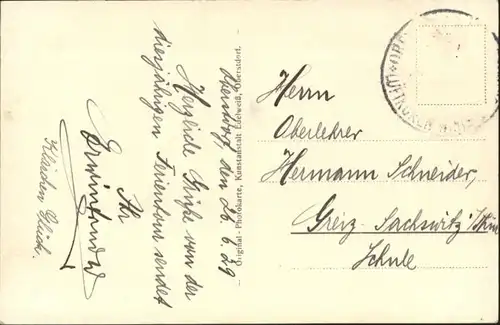 Oberstdorf, den 26.6.29
Herzliche Grüße von der
diesjährigen Ferientour sendet
Ihr
Erwin
Klärchen
Original-Photokarte, Kunstanstalt Edelweiß, Oberstdorf.
Herrn
Oberlehrer
Hermann Schneider,
Greiz-Sachswitz/Thür
Schule